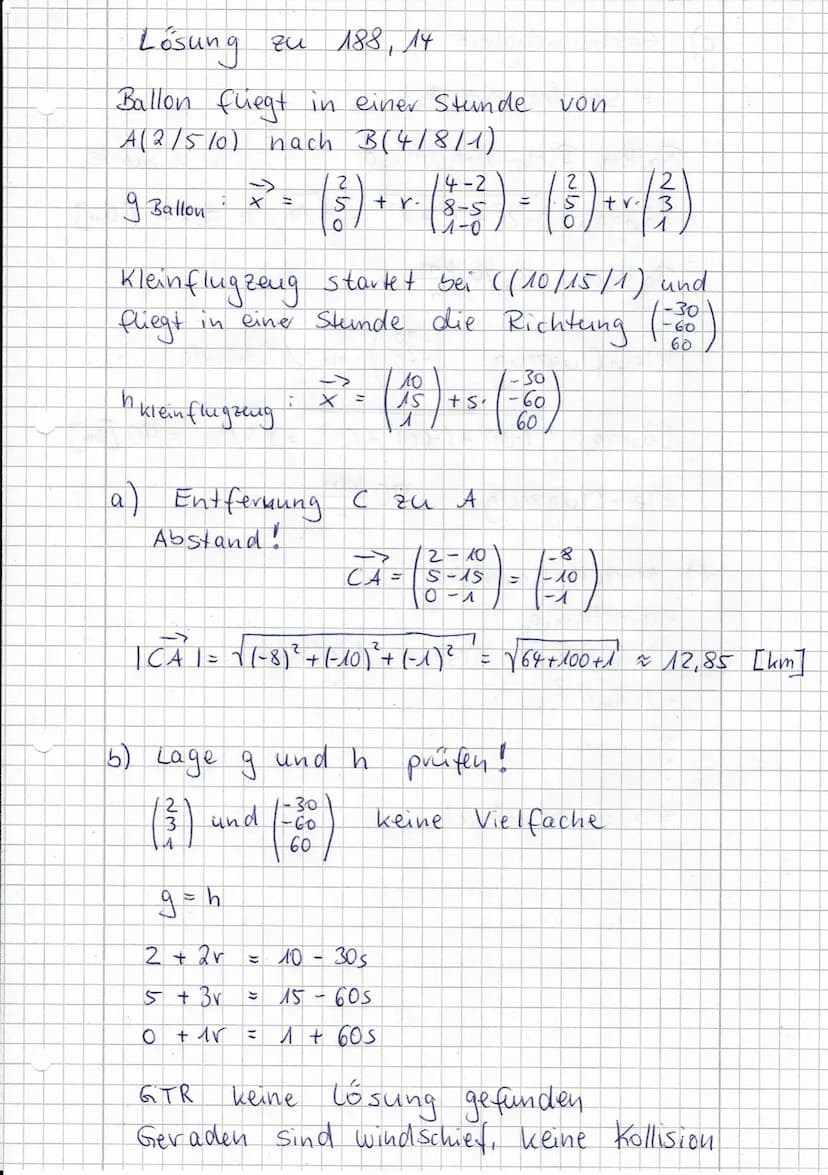 Lösung zu 188, 14
Ballon fliegt in einer Stunde von
A(2/5/0) nach B(4/8/1)
g Ballon : x⃗ = (2 5 0) + r · (4-2 8-5 1-0) = (2 5 0) + r · (2 3 1)
Kleinflugzeug startet bei C(10/15/1) und
fliegt in einer Stunde die Richtung (-30 -60 60)
h Kleinflugzeug : x⃗ = (10 15 1) + s · (-30 -60 60)
a) Entfernung C zu A
Abstand!
CA⃗ = (2-10 5-15 0-1) = (-8 -10 -1)
|CA⃗| = √((-8)² + (-10)² + (-1)²) = √(64+100+1) ≈ 12,85 [km]
b) Lage g und h prüfen!
(2 3 1) und (-30 -60 60) keine Vielfache
g = h
2 + 2r = 10 - 30s
5 + 3r = 15 - 60s
0 + 1r = 1 + 60s
GTR keine Lösung gefunden
Geraden sind windschief, keine Kollision